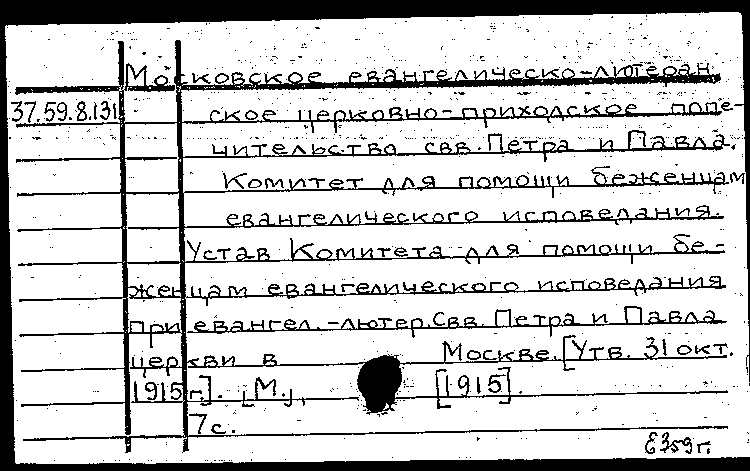 Московское евангелическо-лютеран
37.59.8.131 ское церковно-приходское попе-
чительство свв. Петра и Павла.
Комитет для помощи беженцам
евангелического исповедания.
Устав Комитета для помощи бе-
женцам евангелического исповедания
при евангел.-лютер. Свв. Петра и Павла
церкви в Москве. [Утв. 31 окт.
1915 г.]. [М.], [1915].
7 с.